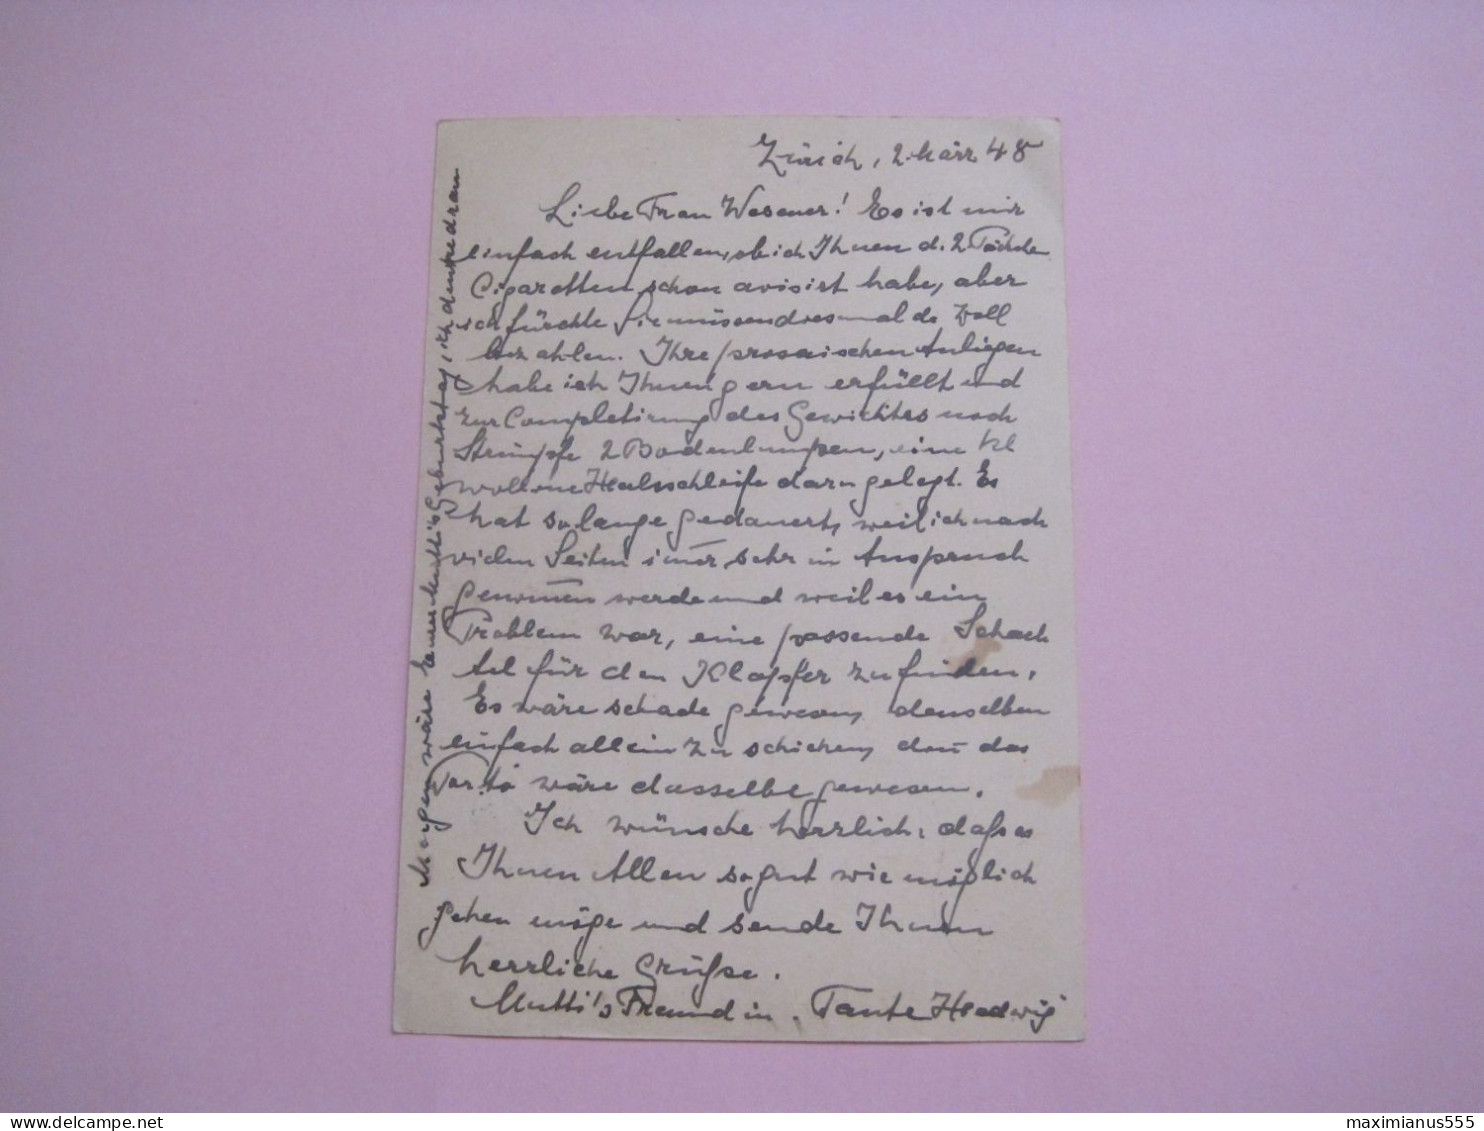 Zürich, 2. März 48
Liebe Frau Wesener! Es ist mir
einfach entfallen, ob ich Ihnen d. 2 Päckche
Cigaretten schon avisirt habe, aber
ich fürchte Sie müssen diesmal de Zoll
bezahlen. Ihre prosaischen Anliegen
habe ich Ihnen gern erfüllt und
zur Completirung des Gewichtes noch
Strümpfe 2 Bodenlumpen, eine kl
wollene Halsschleife darin gelegt. Es
hat so lange gedauert, weil ich nach
vielen Seiten im̅er sehr in Anspruch
genom̅en werde und weil es ein
Problem war, eine passende Schach
tel für den Klopfer zu finden.
Es wäre schade gewesen, denselben
einfach allein zu schicken, den̅ das
Porto wäre dasselbe gewesen.
Ich wünsche herzlich, daß es
Ihnen Allen so gut wie möglich
gehen möge und sende Ihnen
herzliche Grüße.
Mutti's Freundin. Tante Hedwig
Morgen wäre Mutti's Geburtstag, ich denke dran
maximianus555